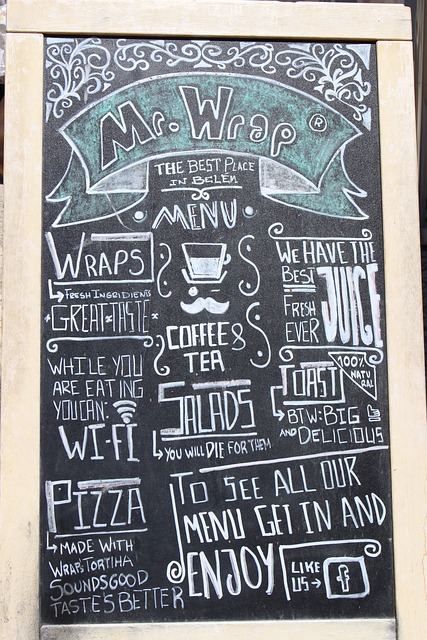 Mr. Wrap ®
THE BEST PLACE
IN BELÉM
MENU
WRAPS
FRESH INGRIDIENTS
GREAT TASTE
WHILE YOU
ARE EATING
YOU CAN:
WI-FI
COFFEE &
TEA
SALADS
YOU WILL DIE FOR THEM
WE HAVE THE
BEST
FRESH
EVER
JUICE
100%
NATU
RAL
TOAST
BTW: BIG
AND DELICIOUS
PIZZA
MADE WITH
WRAP: TORTIHA
SOUNDS GOOD
TASTE'S BETTER
TO SEE ALL OUR
MENU GET IN AND
ENJOY
LIKE
US
f